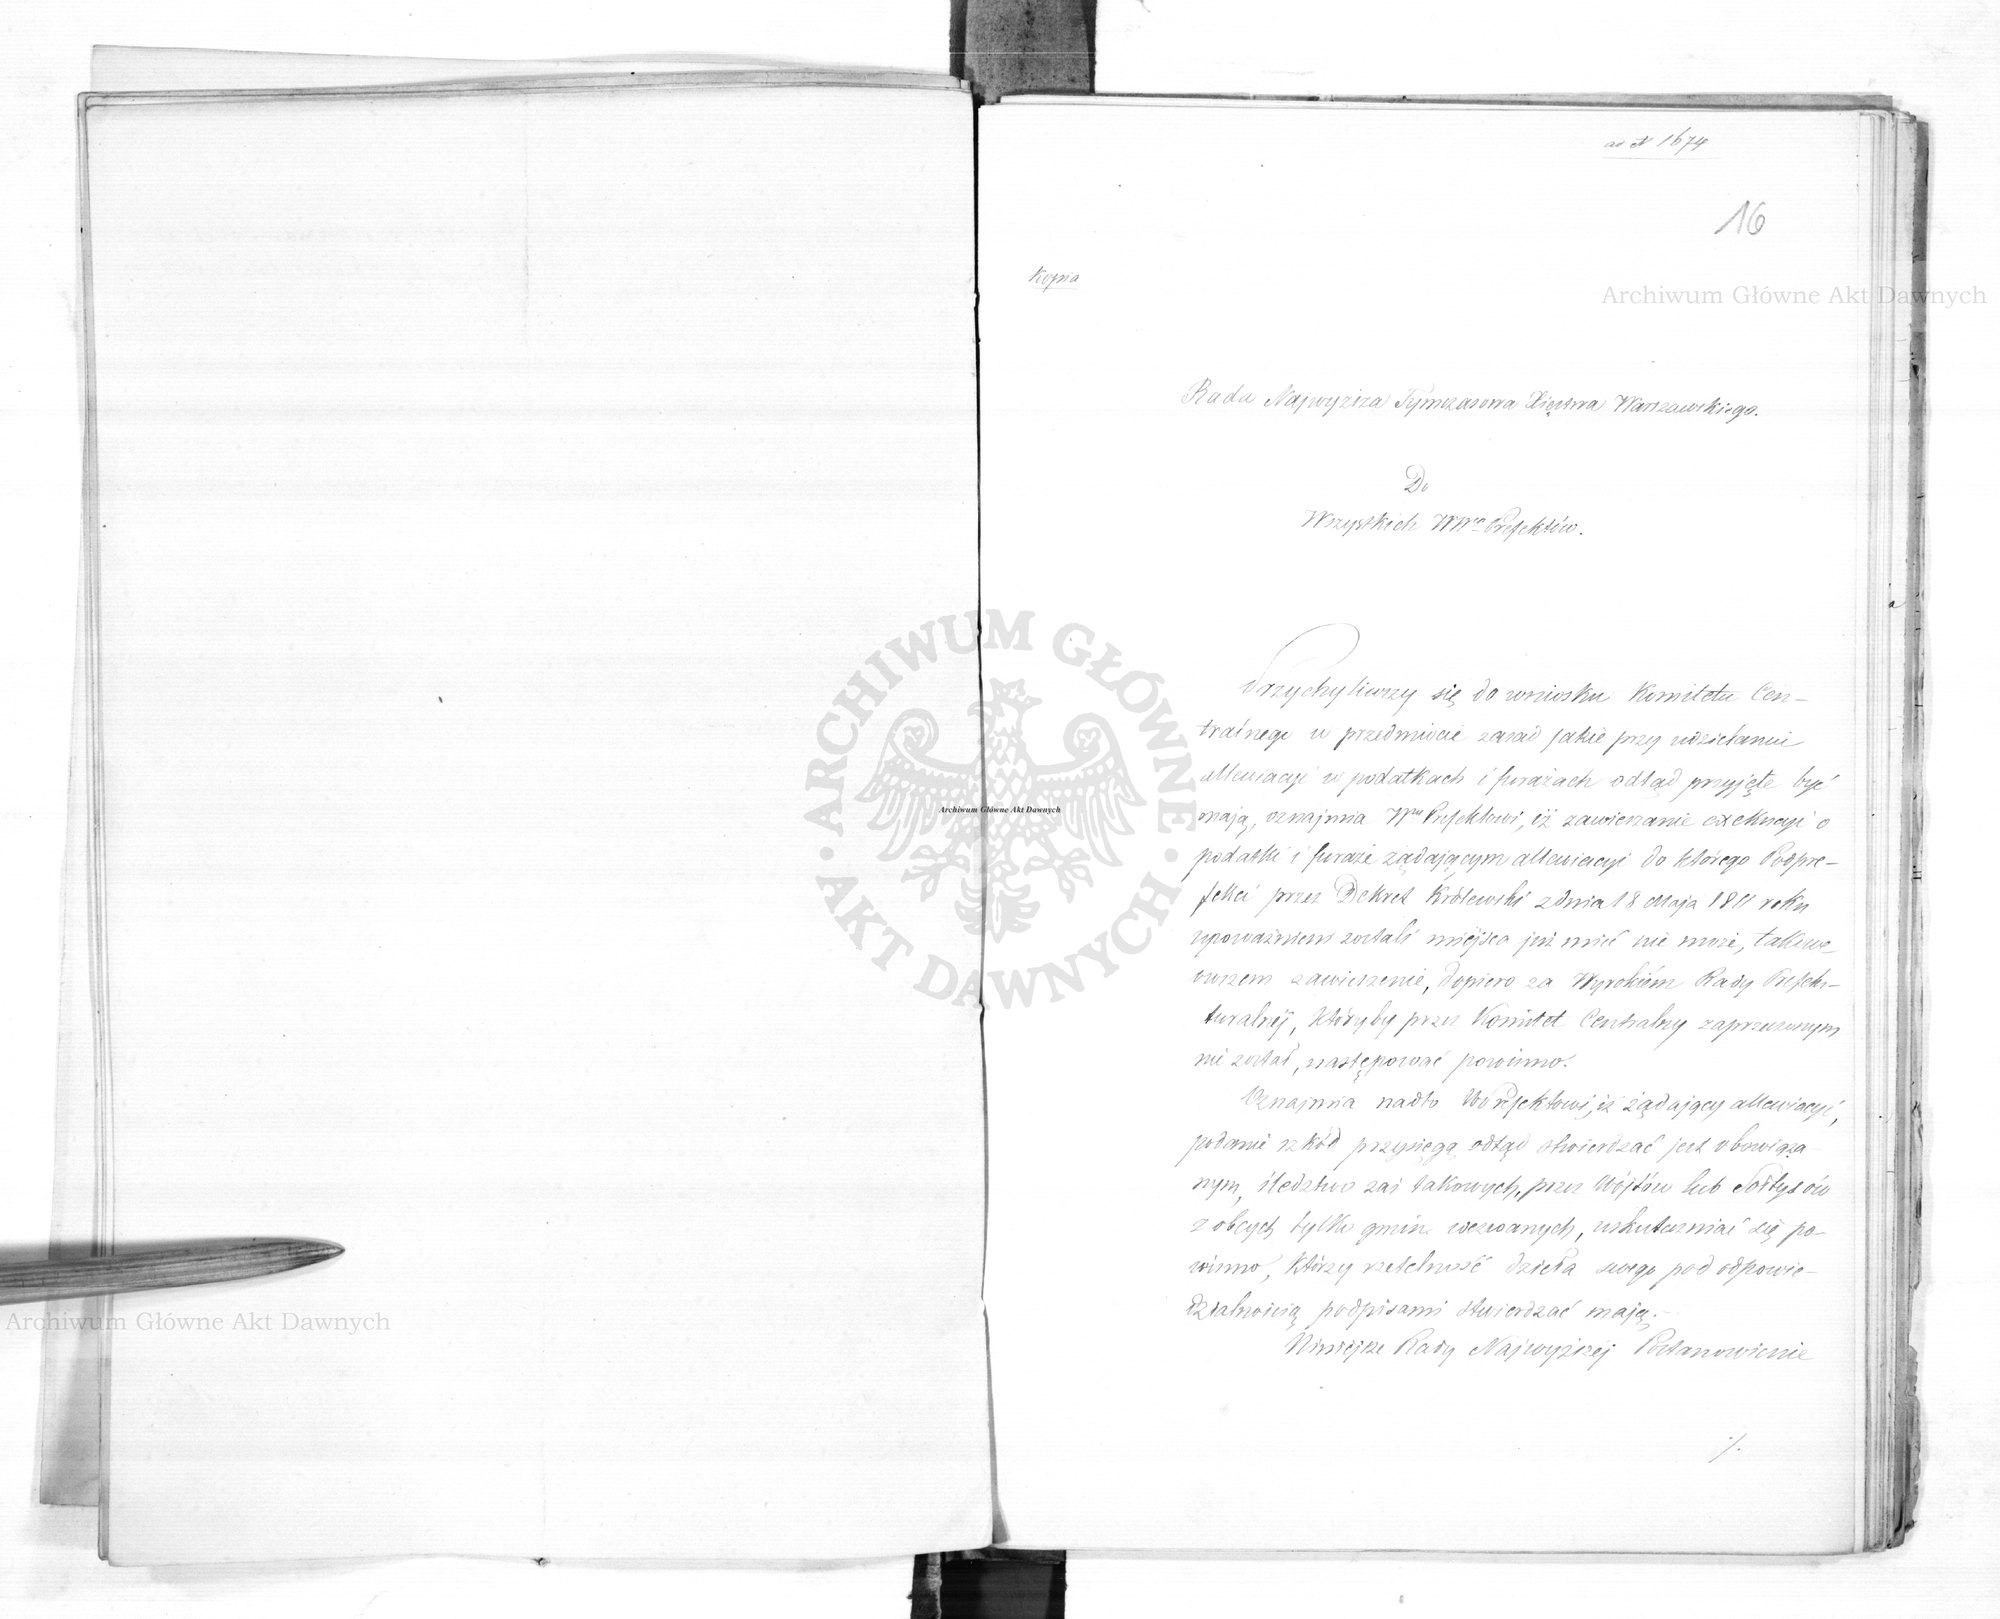 ad N 1674
16
Kopia
Archiwum Główne Akt Dawnych
Rada Najwyższa Tymczasowa Xięstwa Warszawskiego.
Do
Wszystkich WWch Prefektów.
Przychyliwszy się do wniosku Komitetu Cen-
tralnego w przedmiocie zasad jakie przy udzielaniu
allewiacyi w podatkach i furażach odtąd przyjęte być
mają, oznajmia Wmu Prefektowi, iż zawieszanie exekucyi o
podatki i furaże żądającym allewiacyi do którego Podpre-
fekci przez Dekret Królewski z dnia 18 Maja 1811 roku
upoważnieni zostali miejsca już mieć nie może, takowe
owszem zawieszenie, dopiero za Wyrokiem Rady Prefek-
turalnéj, któryby przez Komitet Centralny zaprzeczonym
nie został, następować powinno.
Oznajmia nadto W Prefektowi, iż żądający allewiacyi,
podanie szkód przysięgą odtąd stwierdzać jest obowiąza-
nym, śledztwo zaś takowych, przez Wójtów lub Sołtysów
z obcych tylko gmin wezwanych, uskuteczniać się po-
winno, którzy rzetelność dzieła swego pod odpowie-
dzialnością podpisami stwierdzać mają.
Niniejsze Rady Najwyższéj Postanowienie
./.
ARCHIWUM GŁÓWNE AKT DAWNYCH
Archiwum Główne Akt Dawnych
Archiwum Główne Akt Dawnych